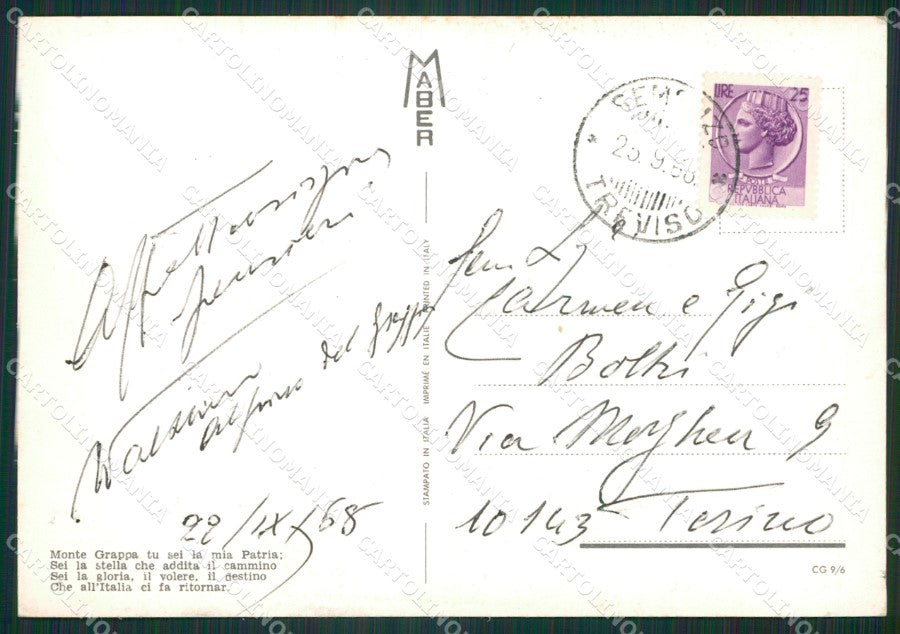 MABER
LIRE 25
POSTE
REPVBBLICA
ITALIANA
TREVISO
Affettuosissimi
pensieri
Alfonso del Grappa
22/IX/68
Carmen e Gigi
Via Morghen 9
10143 Torino
Monte Grappa tu sei la mia Patria;
Sei la stella che addita il cammino
Sei la gloria, il volere, il destino
Che all'Italia ci fa ritornar.
STAMPATO IN ITALIA IMPRIMÉ EN ITALIE PRINTED IN ITALY
CG 9/6
CARTOLINOMANIA